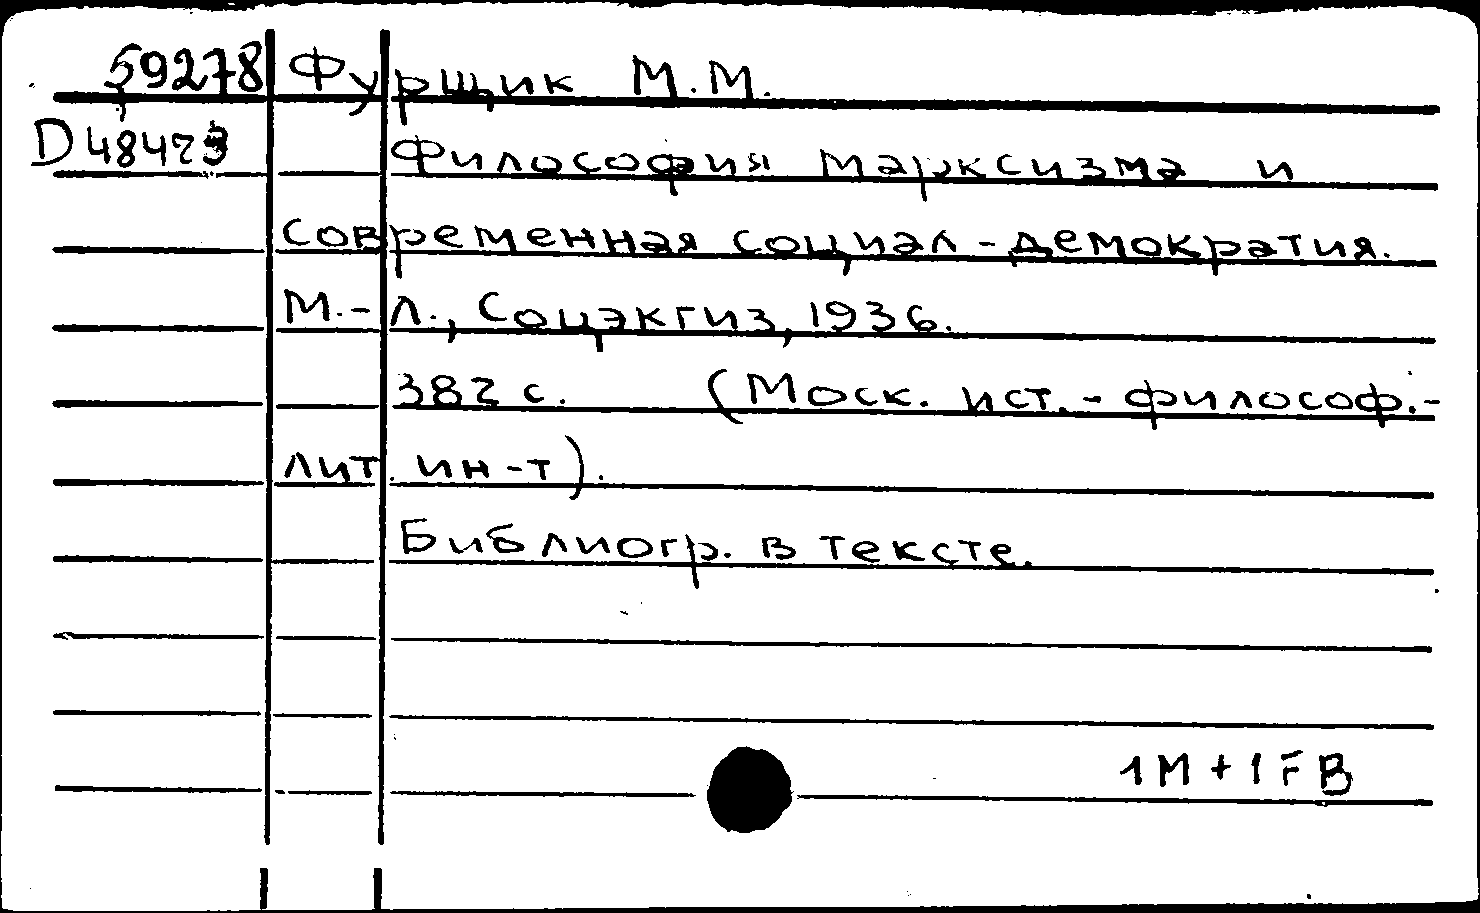 59278 Фурщик М.М.
D48473 Философия марксизма и
современная социал-демократия.
М.-Л., Соцэкгиз, 1936.
382 с. (Моск. ист.-философ.-
лит. ин-т).
Библиогр. в тексте.
1M+1FB